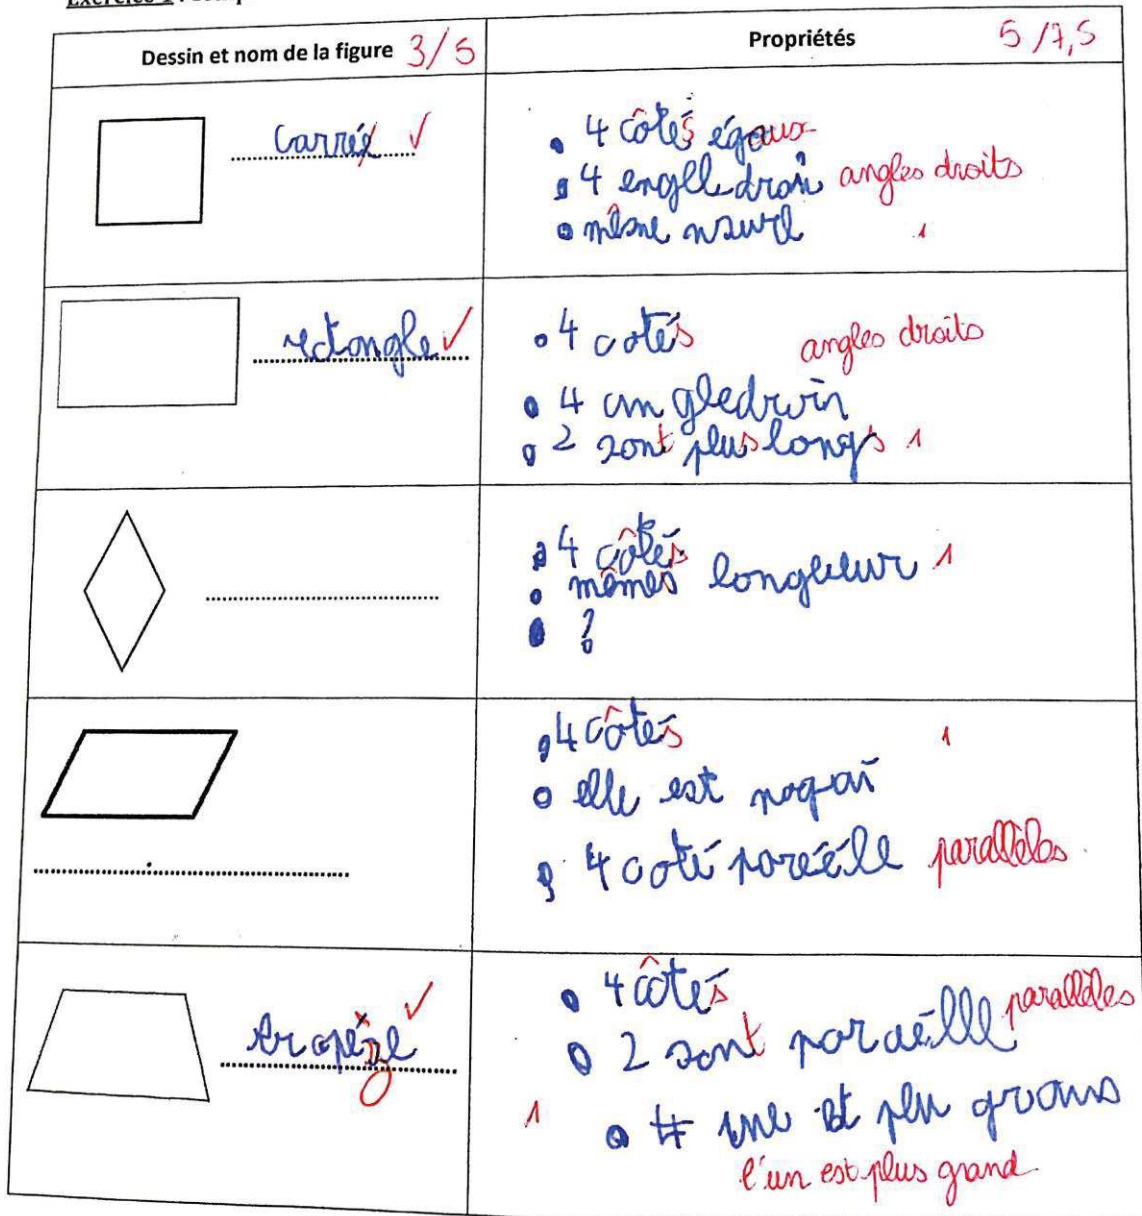 Dessin et nom de la figure 3/5
Propriétés 5/7,5
carrée ✓
• 4 côtés égaux
• 4 englle droi angles droits
• même 1
rectangle ✓
• 4 cotés angles droits
• 4 an gledroin
• 2 sont plus longs 1
• 4 côtés
• mêmes longueur 1
• ?
• 4 côtés 1
• elle est
• 4 coté poréèlle parallèles
trapèze ✓
• 4 côtés
• 2 sont paraélle parallèles
1 • une et plu grans
l'un est plus grand